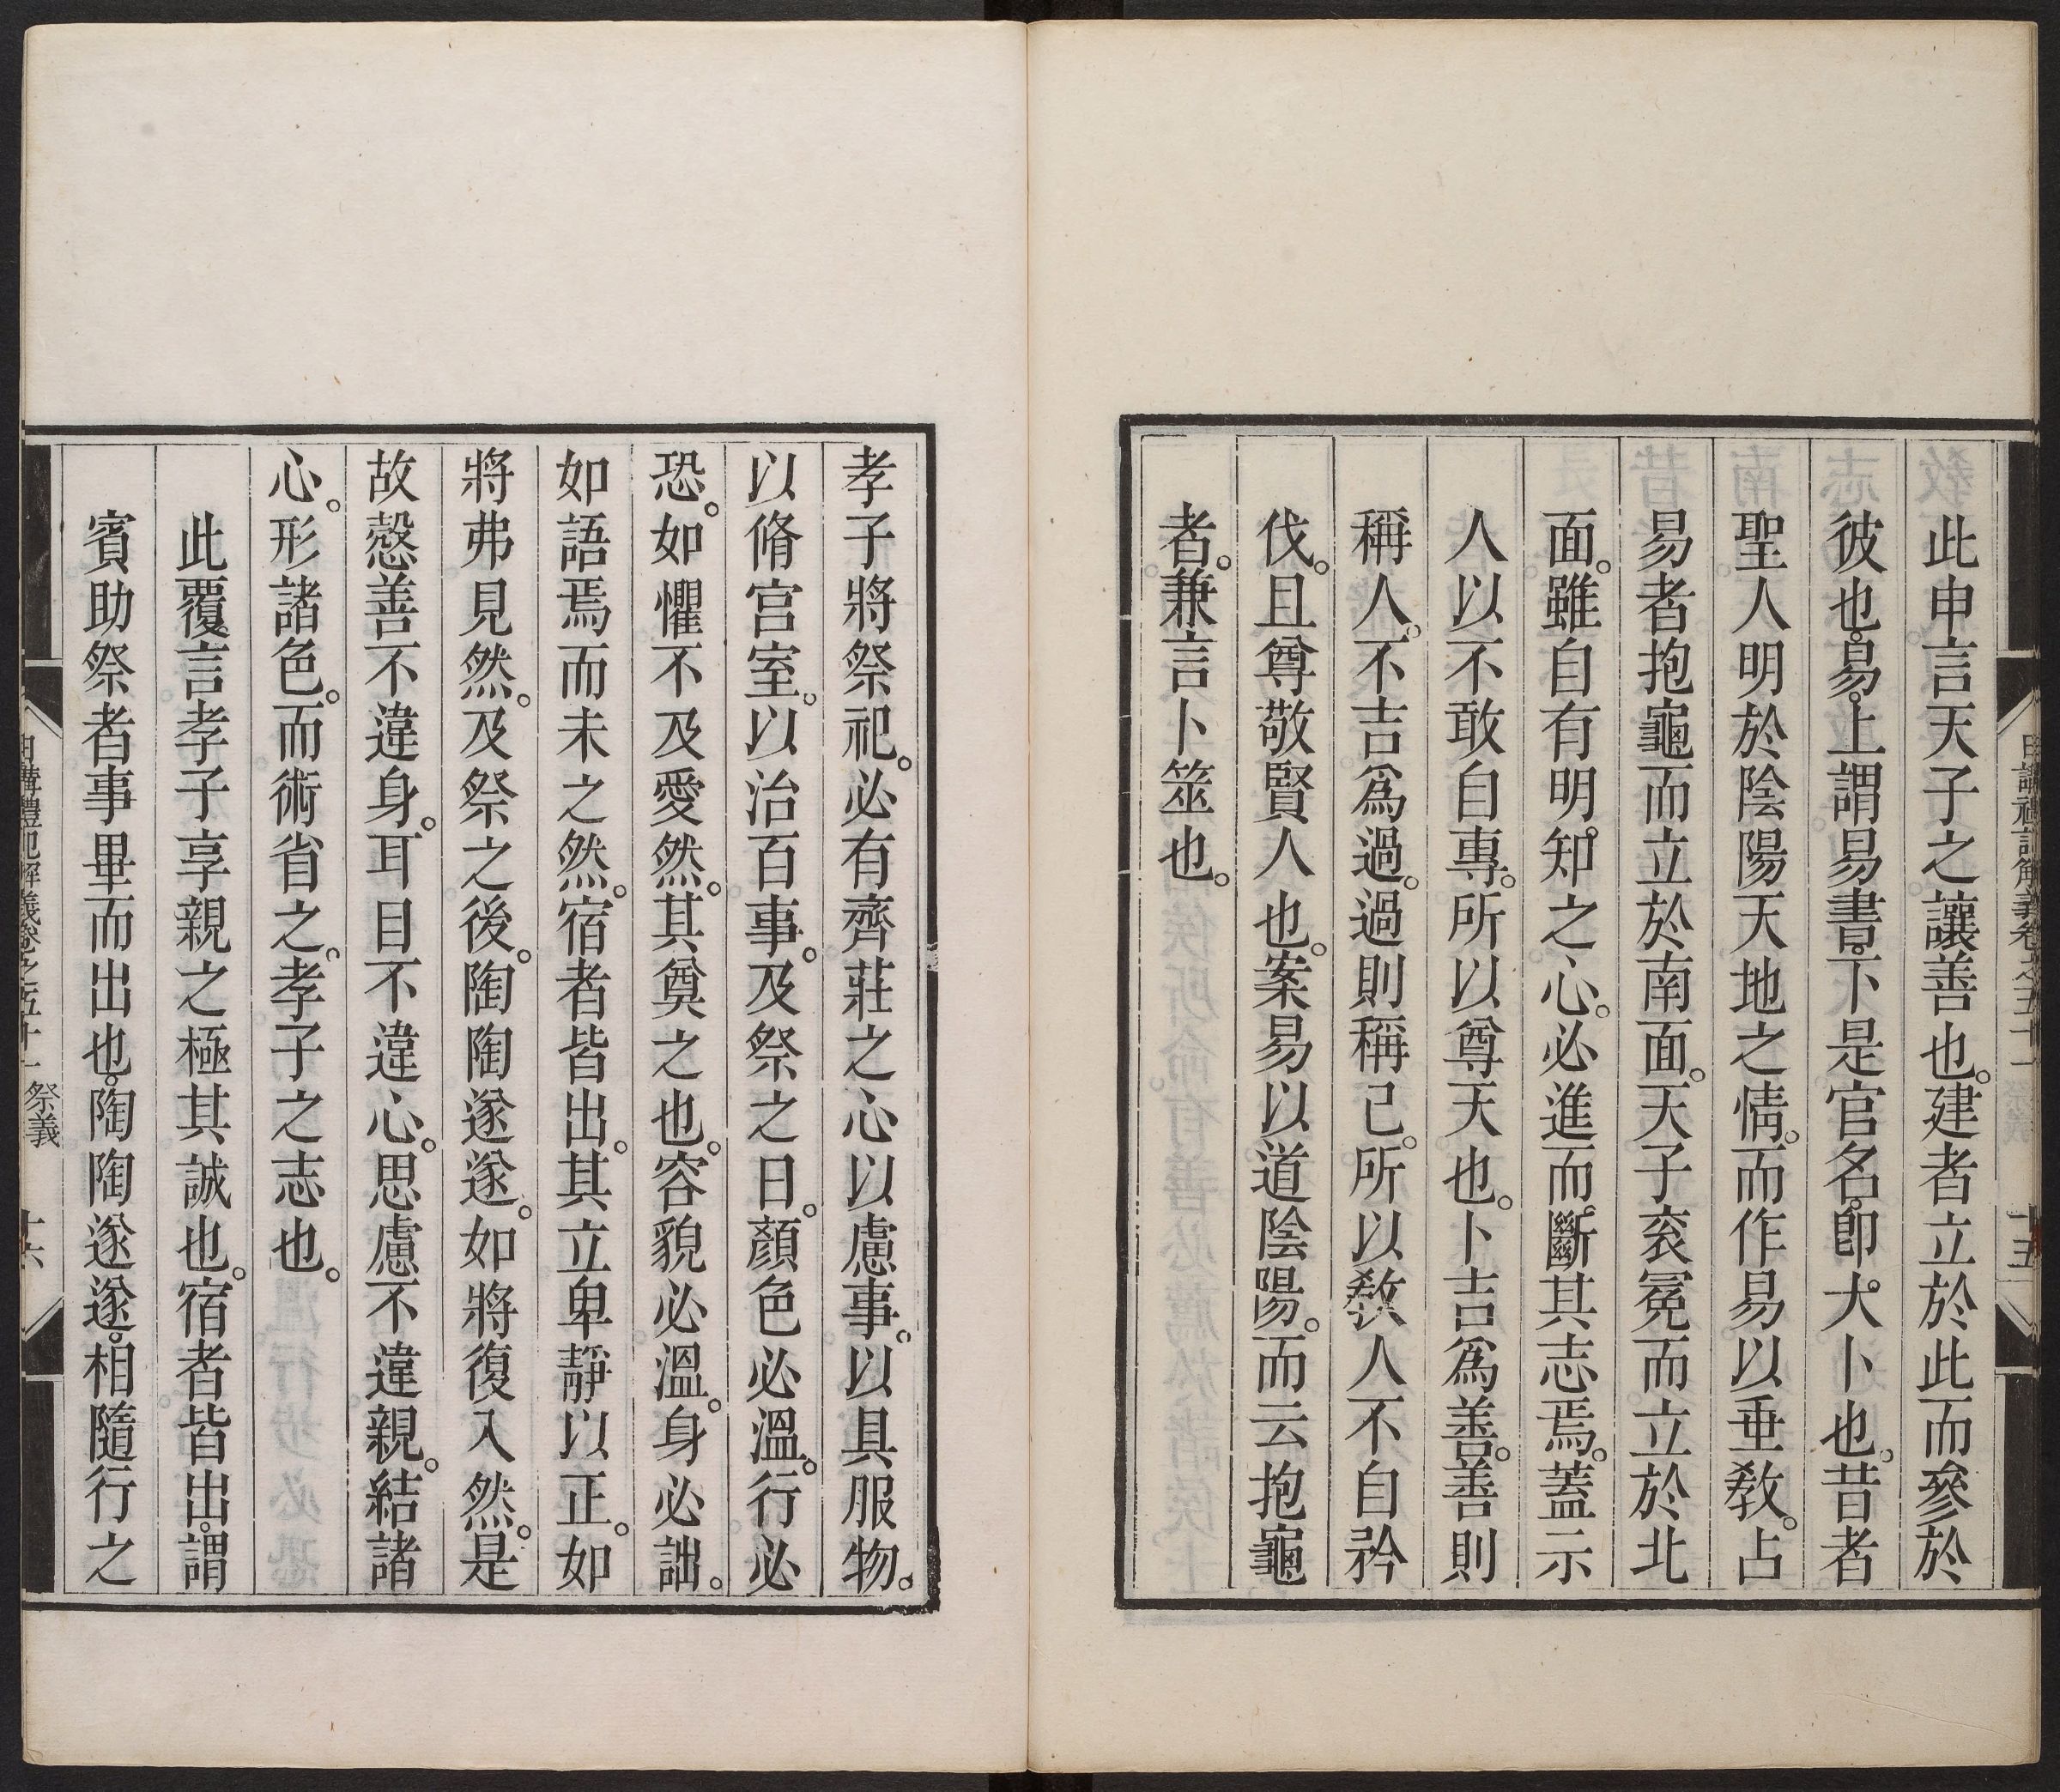 此申言天子之讓善也。建者立於此而參於
彼也。易。上謂易書。下是官名。卽大卜也。昔者
聖人明於陰陽天地之情。而作易以垂敎。占
易者抱龜而立於南面。天子袞冕而立於北
面。雖自有明。知之心。必進而。斷其志焉。蓋示
人以不敢自專。所以尊天也。卜吉爲善。善則
稱人。不吉爲過。過則稱己。所以敎人不自矜
伐。且尊敬賢人也。案易以道陰陽。而云抱龜
者。兼言卜筮也。
日講禮記解義卷之五十一 祭義 十五
孝子將祭祀。必有齊莊之心以慮事。以具服物。
以脩宮室。以治百事。及祭之日。顏色必溫。行必
恐。如懼不及愛然。其奠之也。容貌必溫。身必詘。
如語焉而未之然。宿者皆出。其立卑靜以正。如
將弗見然。及祭之後。陶陶遂遂。如將復入然。是
故慤善不違身。耳目不違心。思慮不違親。結諸
心。形諸色。而術省之。孝子之志也。
此覆言孝子享親之極其誠也。宿者皆出。謂
賓助祭者事畢而出也。陶陶遂遂。相隨行之
日講禮記解義卷之五十一 祭義 十六